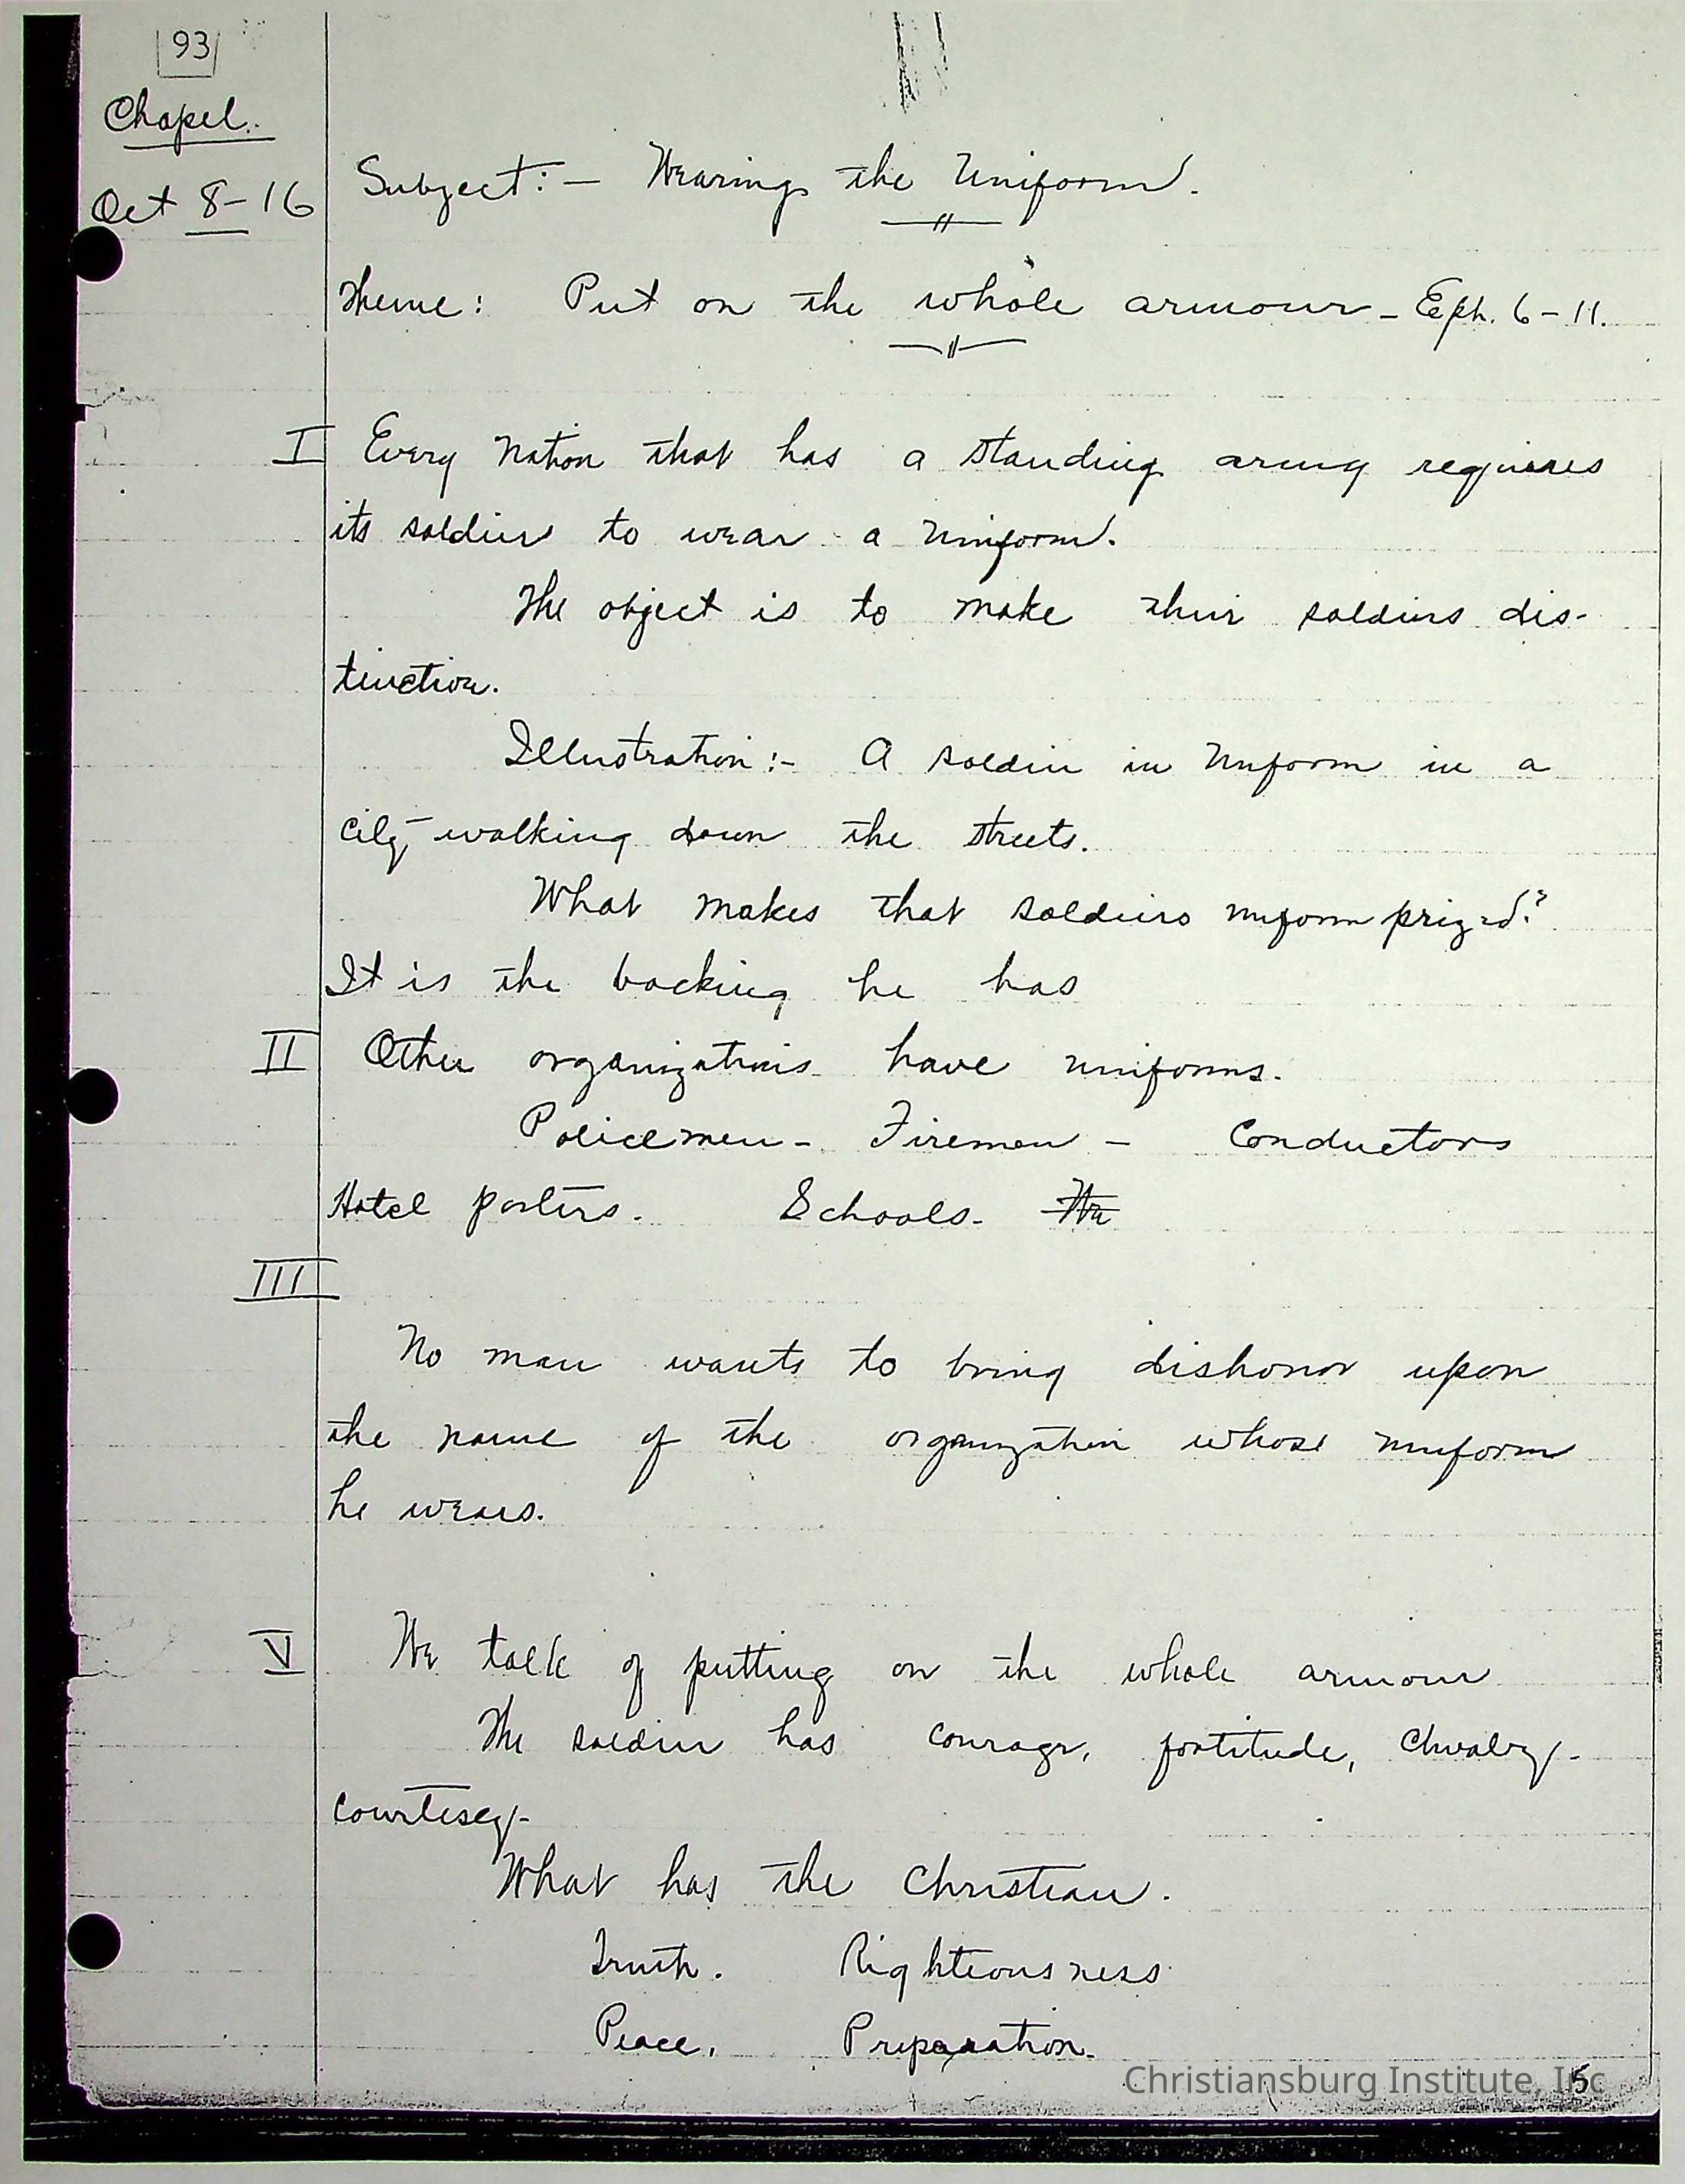 93
Chapel.
Oct 8-16
Subject:- Wearing the Uniform.
Theme: Put on the whole armour - Eph. 6-11.
I Every Nation that has a standing army requires
its soldier to wear a uniform.
The object is to make their soldiers dis-
tinction.
Illustration:- A soldier in Uniform in a
City- walking down the streets.
What makes that soldiers uniform prized?
It is the backing he has
II Other organizations have uniforms.
Policemen - Firemen - Conductors
Hotel porters. Schools. We
III
No man wants to bring dishonor upon
the name of the organization whose uniform
he wears.
V We talk of putting on the whole armour
The soldier has courage, fortitude, Chivalry-
courtesey-
What has the Christian.
Truth. Righteousness
Peace, Preparation.
Christiansburg Institute, Inc
5